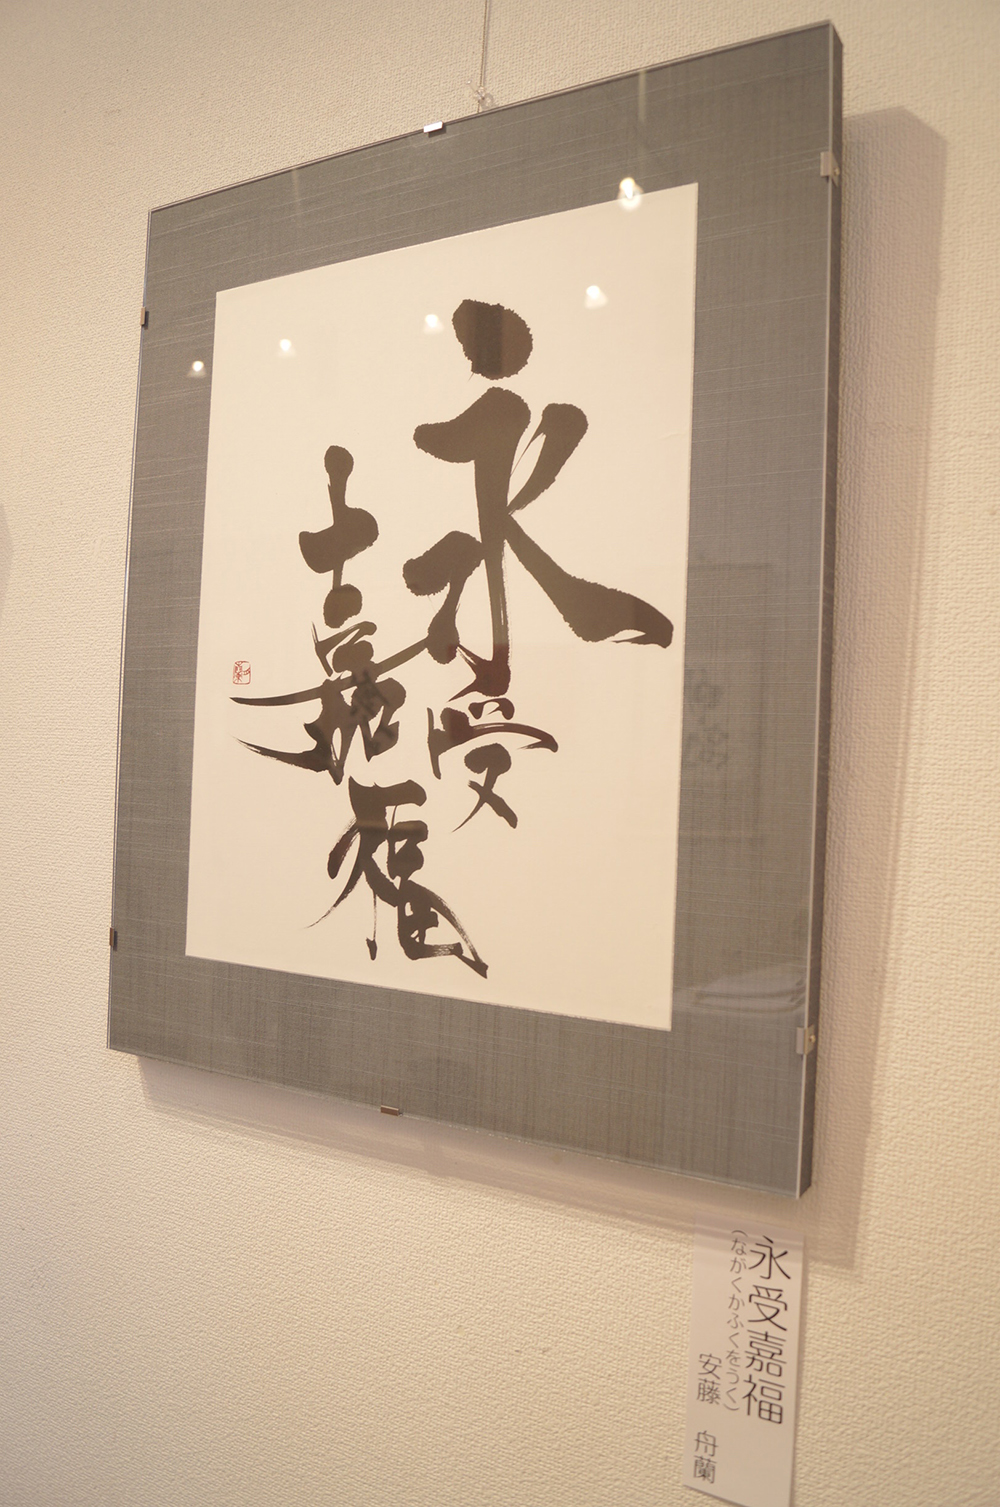 永受
嘉福
永受嘉福
(ながくかふくをうく)
安藤 舟蘭